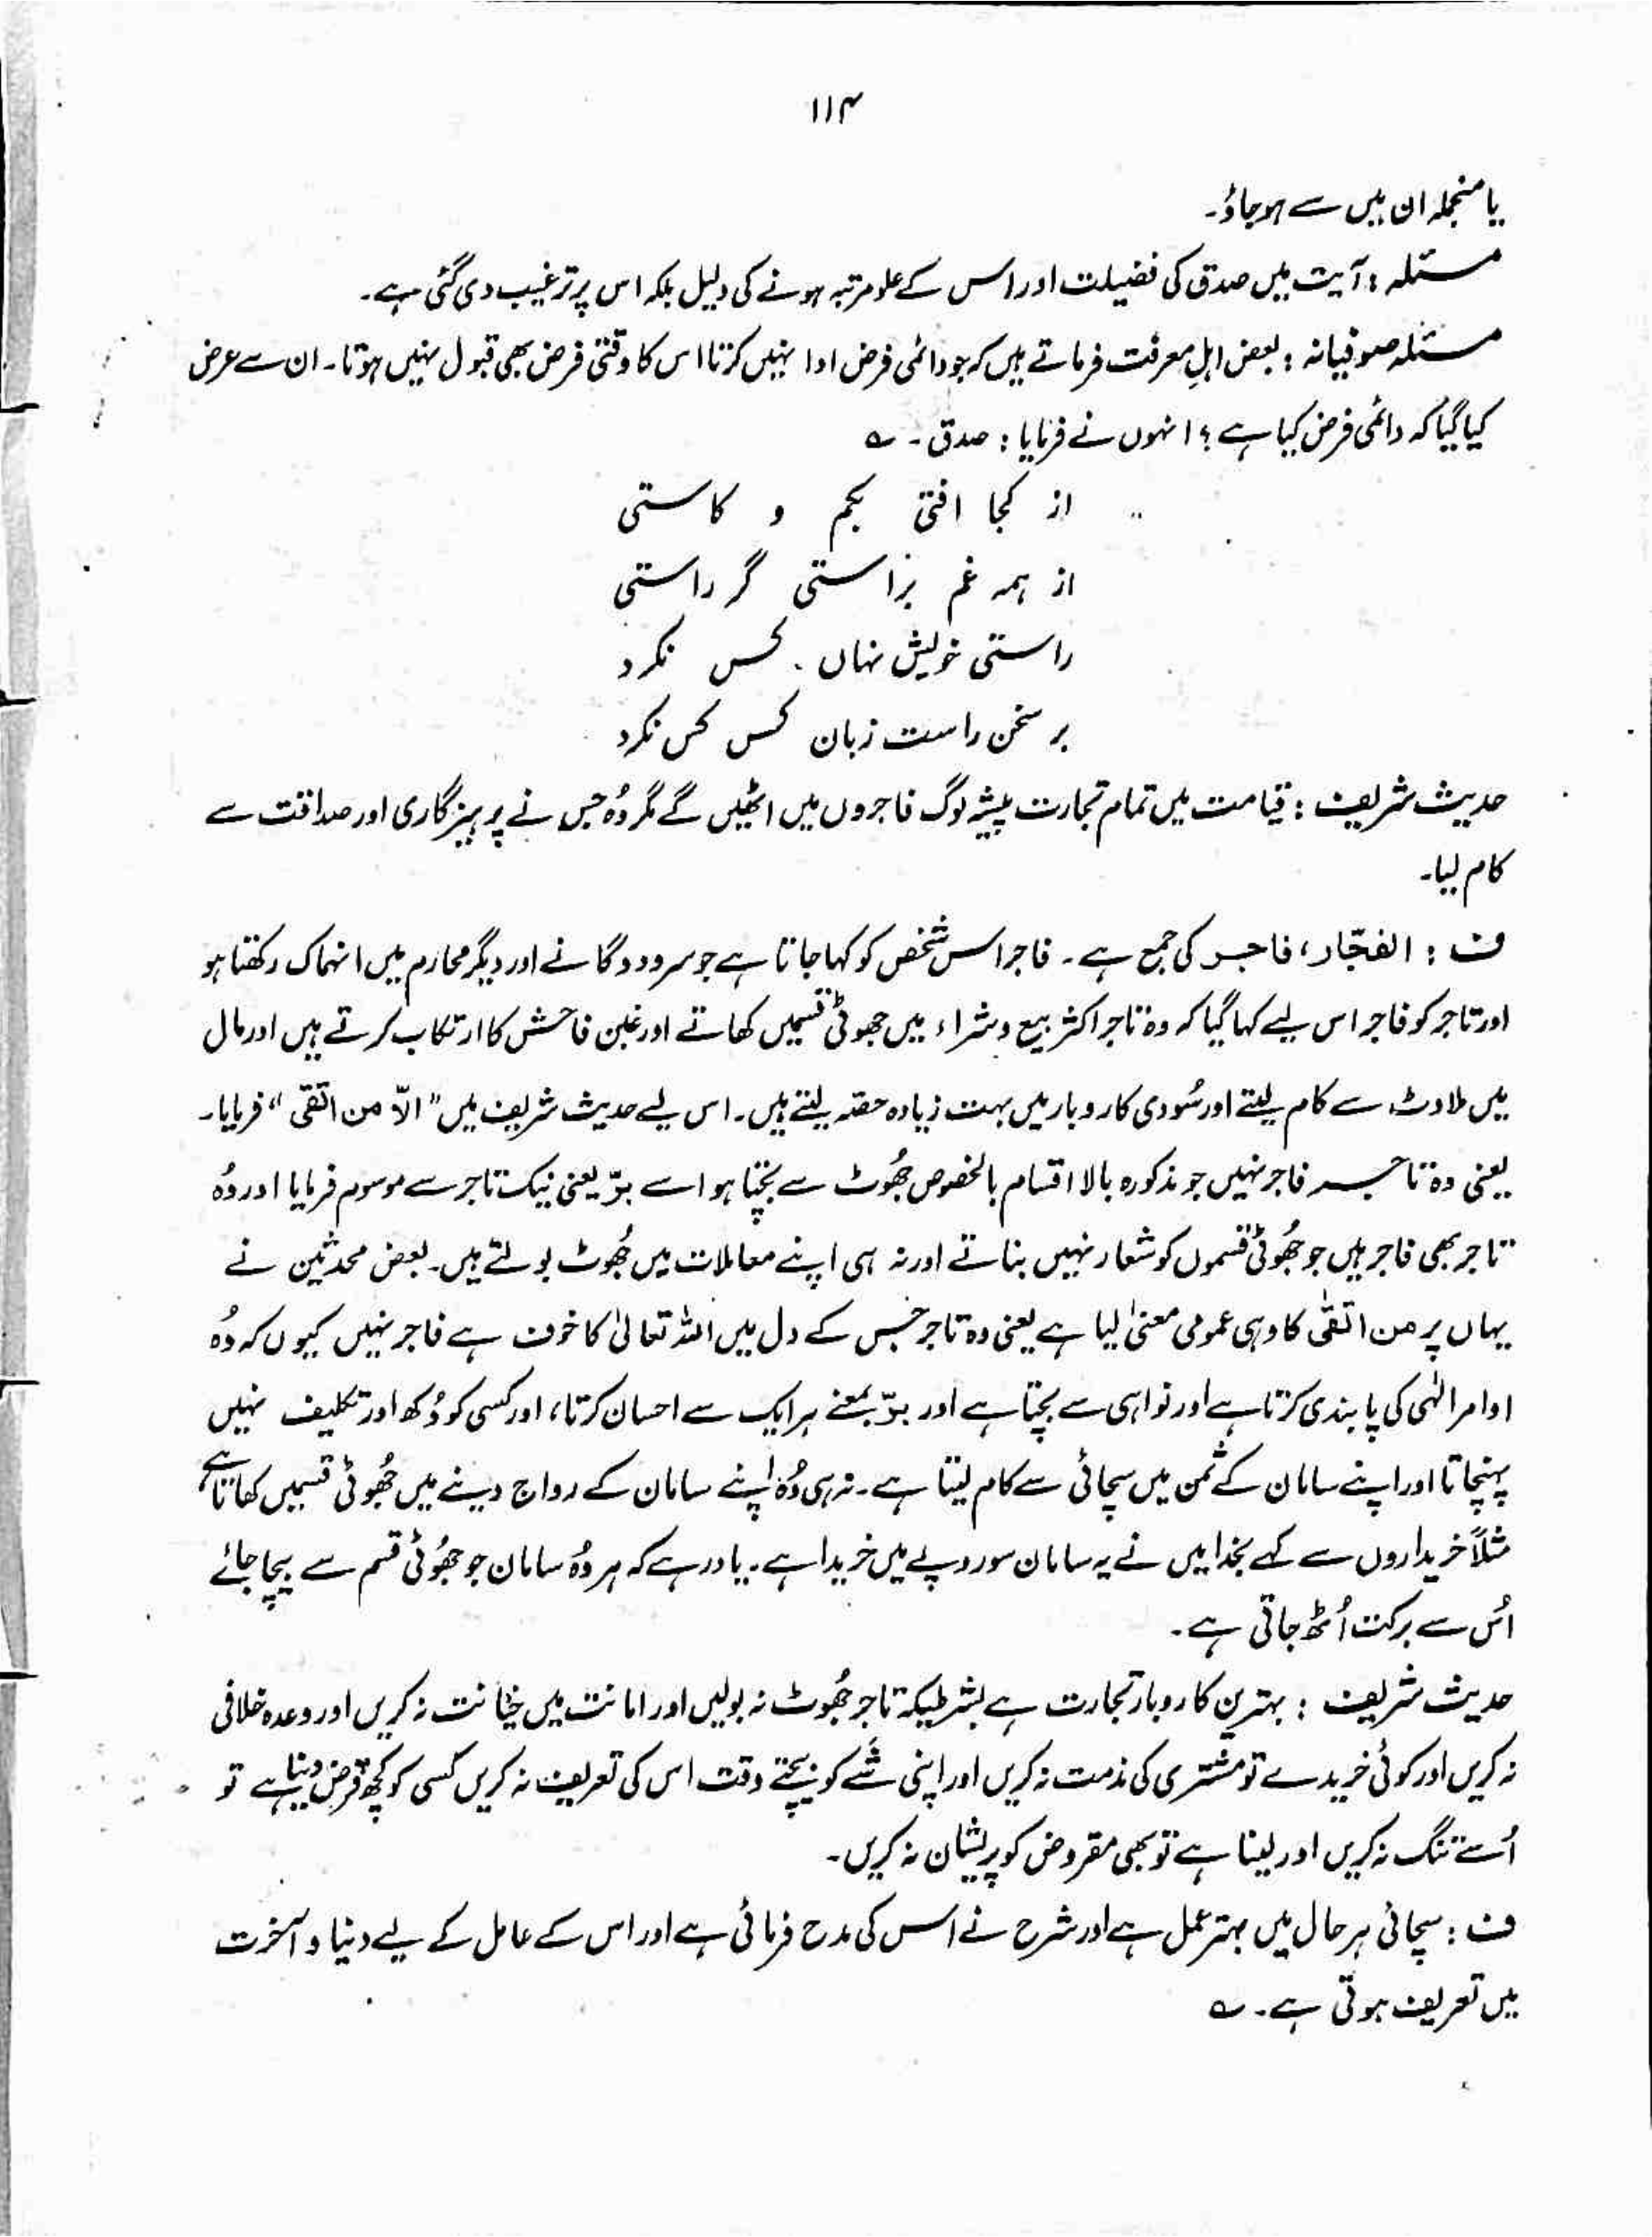 ۱۱۴
یا منجملہ ان میں سے ہوجاؤ۔
مسئلہ : آیت میں صدق کی فضیلت اور اس کے علو مرتبہ ہونے کی دلیل بلکہ اس پر ترغیب دی گئی ہے۔
مسئلہ صوفیانہ : بعض اہلِ معرفت فرماتے ہیں کہ جو دائمی فرض ادا نہیں کرتا اس کا وقتی فرض بھی قبول نہیں ہوتا۔ ان سے عرض
کیا گیا کہ دائمی فرض کیا ہے ؟ انہوں نے فرمایا : صدق۔ ؎
از کجا افتی بکم و کاستی
از ہمہ غم برَاستی گر راستی
راستی خویش نہاں کس نکرد
بر سخن راست زبان کس کس نکرد
حدیث شریف : قیامت میں تمام تجارت پیشہ لوگ فاجروں میں اٹھیں گے مگر وُہ جس نے پرہیزگاری اور صداقت سے
کام لیا۔
ف : الفجّار، فاجر کی جمع ہے۔ فاجر اس شخص کو کہا جاتا ہے جو سرود و گانے اور دیگر محارم میں انہماک رکھتا ہو
اور تاجر کو فاجر اس لیے کہا گیا کہ وہ تاجر اکثر بیع و شراء میں جھوٹی قسمیں کھاتے اور غبن فاحش کا ارتکاب کرتے ہیں اور مال
میں ملاوٹ سے کام لیتے اور سُودی کاروبار میں بہت زیادہ حصّہ لیتے ہیں۔ اس لیے حدیث شریف میں "الاّ من اتقی" فرمایا۔
یعنی وہ تاجر فاجر نہیں جو مذکورہ بالا اقسام بالخصوص جُھوٹ سے بچتا ہو اسے برّ یعنی نیک تاجر سے موسوم فرمایا اور وُہ
تاجر بھی فاجر ہیں جو جُھوٹی قسموں کو شعار نہیں بناتے اور نہ ہی اپنے معاملات میں جُھوٹ بولتے ہیں۔ بعض محدثین نے
یہاں پر من اتقٰی کا وہی عمومی معنیٰ لیا ہے یعنی وہ تاجر جس کے دل میں اللہ تعالیٰ کا خوف ہے فاجر نہیں کیوں کہ وُہ
اوامر الٰہی کی پابندی کرتا ہے اور نواہی سے بچتا ہے اور برّ بمعنے ہر ایک سے احسان کرتا، اور کسی کو دُکھ اور تکلیف نہیں
پہنچاتا اور اپنے سامان کے ثمن میں سچائی سے کام لیتا ہے۔ نہ ہی وُہ اپنے سامان کے رواج دینے میں جُھوٹی قسمیں کھاتا ہے
مثلاً خریداروں سے کہے بخدا میں نے یہ سامان سو روپے میں خریدا ہے۔ یاد رہے کہ ہر وُہ سامان جو جھُوٹی قسم سے بیچا جائے
اُس سے برکت اُٹھ جاتی ہے۔
حدیث شریف : بہترین کاروبار تجارت ہے بشرطیکہ تاجر جُھوٹ نہ بولیں اور امانت میں خیانت نہ کریں اور وعدہ خلافی
نہ کریں اور کوئی خریدے تو مشتری کی مذمت نہ کریں اور اپنی شَے کو بیچتے وقت اس کی تعریف نہ کریں کسی کو کچھ قرض دینا ہے تو
اُسے تنگ نہ کریں اور لینا ہے تو بھی مقروض کو پریشان نہ کریں۔
ف : سچائی ہر حال میں بہتر عمل ہے اور شرح نے اس کی مدح فرمائی ہے اور اس کے عامل کے لیے دنیا و آخرت
میں تعریف ہوتی ہے۔ ؎